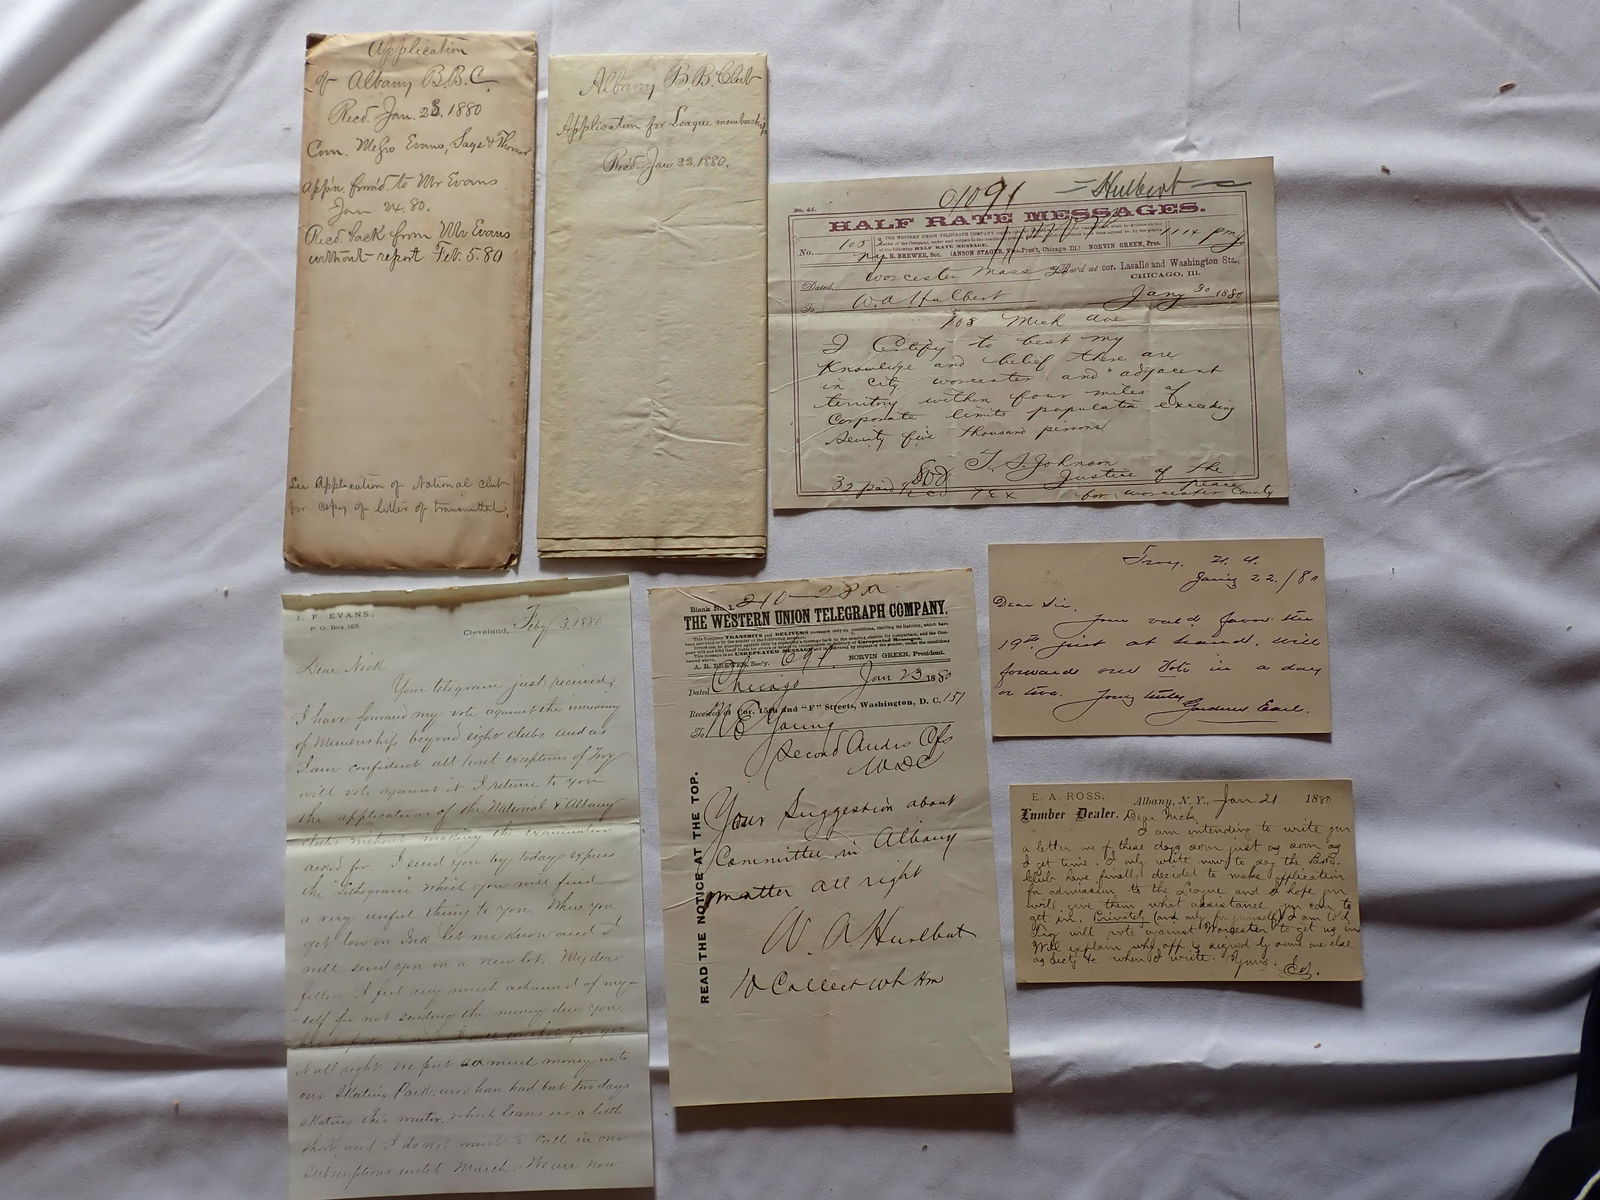 Application
of Albany B.B.C.
Recd. Jan. 23. 1880
Com. Messrs Evans, Sage & Thorner
app'n. forw'd. to Mr Evans
Jan 24. 80.
Recd. back from Mr Evans
without report Feb. 5. 80
See Application of National club
for copy of letter of transmittal.
Albany B.B. Club
Application for League membership
Rec'd. Jan 22. 1880.
Hulbert
No. 44.
HALF RATE MESSAGES.
THE WESTERN UNION TELEGRAPH COMPANY
No. 105
A. R. BREWER, Sec. (ANSON STAGER, Vice-Pres't, Chicago, Ill.) NORVIN GREEN, Pres.
Dated, Worcester Mass Rec'd at cor. Lasalle and Washington Sts.,
CHICAGO, Ill.
To W. A Hulbert Jany 30 1880
108 Mich ave
I Certify to best my
Knowledge and belief there are
in city worcester and adjacent
territory within four miles of
Corporate limits population exceeding
Seventy five thousand persons
T. S. Johnson
Justice of the
Peace
32 paid for worcester County
Troy, N. Y.
Jan'y 22. /80
Dear Sir,
Your valued favor the
19th just at hand. Will
forward our Vote in a day
or two. Yours truly
Gardner Earl.
J. F. EVANS,
P. O. Box 128.
Cleveland, Feby 3. 1880
Dear Nick
Your telegram just received,
I have forward my vote against the increasing
of Membership beyond eight clubs, and as
I am confident all but exceptions of Troy
will vote against it. I return to you
the applications of the National & Albany
clubs without making the examination
asked for. I send you by todays express
the "Lithogram" which you will find
a very useful thing to you. When you
get low on Ink let me know and I
will send you on a new lot. My dear
fellow I feel very much ashamed of my-
-self for not sending the money due you,
it all right. We put so much money into
our Skating Park, and han had but two days
skating this winter, which leaves us a little
short, and I do not want to call in our
Subscriptions until March. We are now
Blank No. 1.
THE WESTERN UNION TELEGRAPH COMPANY.
This Company TRANSMITS and DELIVERS messages only on conditions, limiting its liability, which have
A. R. BREWER, Sec'y. NORVIN GREEN, President.
Dated Chicago Jan 23 1880
Received at Cor. 15th and "F" Streets, Washington, D. C. 151
To N E Young
Second Audrs Ofs
W DC
Your Suggestion about
Committee in Albany
matter all right
W. A Hurlbut
10 Collect
READ THE NOTICE AT THE TOP.
E. A. ROSS,
Lumber Dealer.
Albany, N. Y., Jan 21 1880
Dear Nick,
I am intending to write you
a letter one of these days soon just as soon as
I get time. I only write now to say the B.B.
Club have finally decided to make application
for admission to the League and I hope you
will give them what assistance you can to
get in. Privately (and only for yourself) I am told
Troy will vote against Worcester to get us in
Will explain why app is signed by some one else
as Secty &c when I write. Yours. Ed.